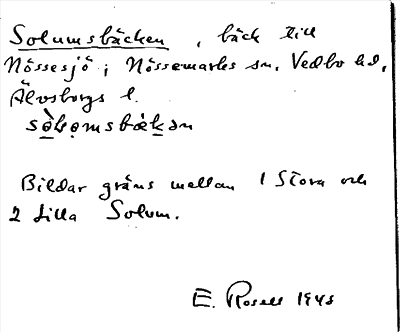 Solumsbäcken, bäck till
Nössesjö i Nössemarks sn, Vedbo hd,
Älvsborgs l.
Bildar gräns mellan 1 Stora och
2 Lilla Solum.
E. Rosell 1945